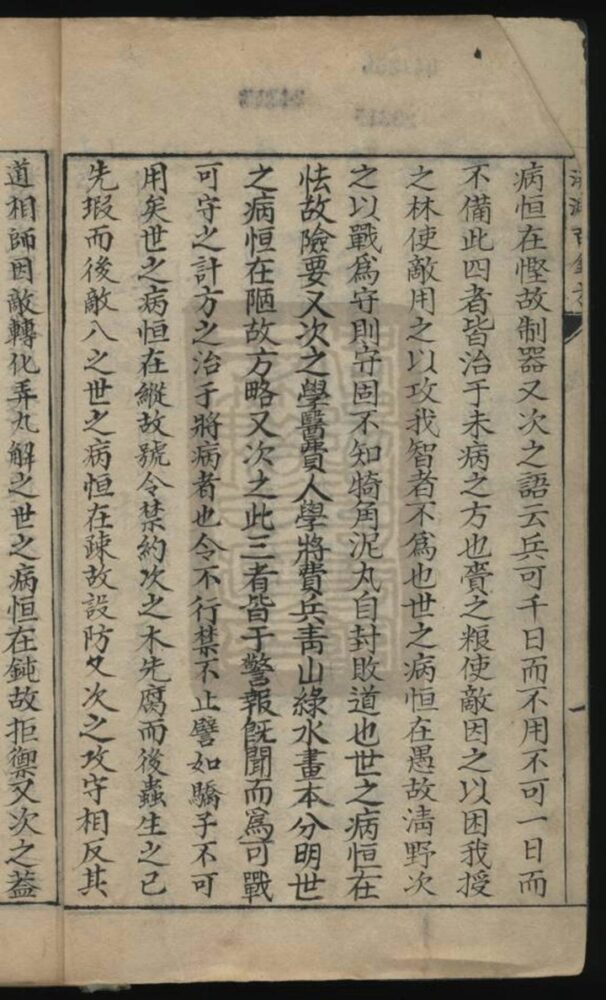 病恒在慳故制器又次之語云兵可千日而不用不可一日而
不備此四者皆治于未病之方也賫之粮使敵因之以困我授
之林使敵用之以攻我智者不爲也世之病恒在愚故清野次
之以戰爲守則守固不知犄角泥丸自封敗道也世之病恒在
怯故險要又次之學醫費人學將費兵靑山綠水畫本分明世
之病恒在陋故方略又次之此三者皆于警報旣聞而爲可戰
可守之計方之治于將病者也令不行禁不止譬如驕子不可
用矣世之病恒在縱故號令禁約次之木先腐而後蟲生之已
先瑕而後敵入之世之病恒在疎故設防又次之攻守相反其
道相師因敵轉化弄丸解之世之病恒在鈍故拒禦又次之葢